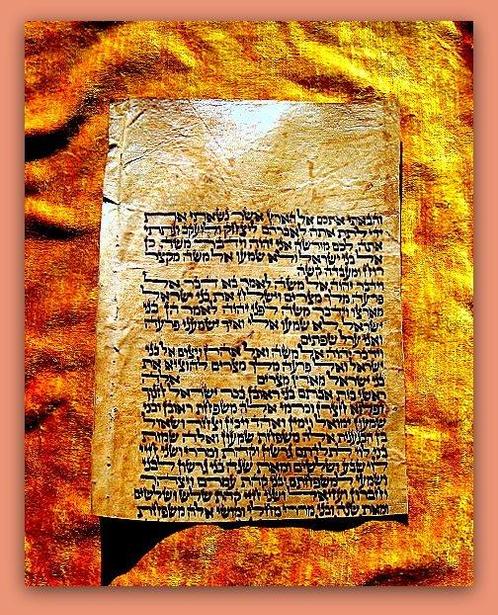 והבאתי אתכם אל הארץ אשר נשאתי את
ידי לתת אתה לאברהם ליצחק וליעקב ונתתי
אתה לכם מורשה אני יהוה וידבר משה כן
אל בני ישראל ולא שמעו אל משה מקצר
רוח ומעבדה קשה
וידבר יהוה אל משה לאמר בא דבר אל
פרעה מלך מצרים וישלח את בני ישראל
מארצו וידבר משה לפני יהוה לאמר הן בני
ישראל לא שמעו אלי ואיך ישמעני פרעה
ואני ערל שפתים
וידבר יהוה אל משה ואל אהרן ויצום אל בני
ישראל ואל פרעה מלך מצרים להוציא את
בני ישראל מארץ מצרים אלה
ראשי בית אבתם בני ראובן בכר ישראל חנוך
ופלוא חצרן וכרמי אלה משפחת ראובן ובני
שמעון ימואל וימין ואהד ויכין וצחר ושאול
בן הכנענית אלה משפחת שמעון ואלה שמות
בני לוי לתלדתם גרשון וקהת ומררי ושני חיי
לוי שבע ושלשים ומאת שנה בני גרשון לבני
ושמעי למשפחתם ובני קהת עמרם ויצהר
וחברון ועזיאל ושני חיי קהת שלש ושלשים
ומאת שנה ובני מררי מחלי ומושי אלה משפחת